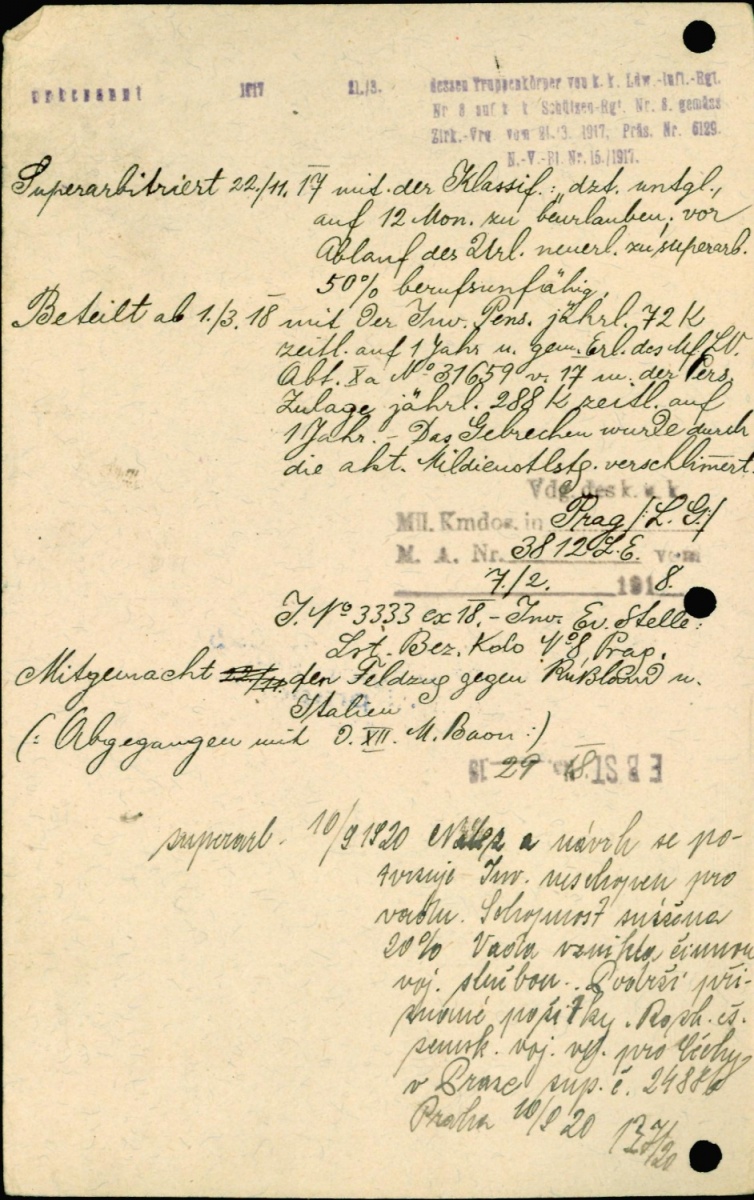 Umbenannt 1917 21./3. dessen Truppenkörper von k. k. Ldw.-Inft.-Rgt.
Nr 8 auf k k Schützen-Rgt. Nr. 8. gemäss
Zirk.-Vrg vom 21./3. 1917, Präs. Nr. 6129.
N.-V.-Bl. Nr. 15./1917.
Superarbitriert 22./11. 17 mit der Klassif.: "dzt. untgl.,
auf 12 Mon. zu beurlauben; vor
Ablauf des Url. neuerl. zu superarb.
50% berufsunfähig.
Beteilt ab 1./3. 18 mit der Inv. Pens. jährl. 72 K
zeitl. auf 1 Jahr u. gem. Erl. des M.f.L.V.
Abt. Xa No 31659 v. 17 m. der Pers.
Zulage jährl. 288 K zeitl. auf
1 Jahr. - Das Gebrechen wurde durch
die akt. Mildienstlstg. verschlimert.
Vdg. des k. u. k.
Mil. Kmdos. in Prag /:L. G:/
M. A. Nr. 3812 L.E. vom
7./2. 1918.
J. No 3333 ex 18. - Inv. Ev. Stelle:
Lst. Bez. Kdo No 8 Prag.
Mitgemacht den Feldzug gegen Rußland u.
Italien
(: Abgegangen mit d. XII. M. Baon :)
29 18.
superarb. 10/9 1920 Nález a návrh se po-
tvrzuje Inv. neschopen pro
vadu. Schopnost snížena
20% Vada vznikla činnou
voj. službou. Podrží při-
znané požitky. Rozh. čs.
zemsk. voj. vel. pro Čechy
v Praze sup. č. 2488
Praha 10/9 20